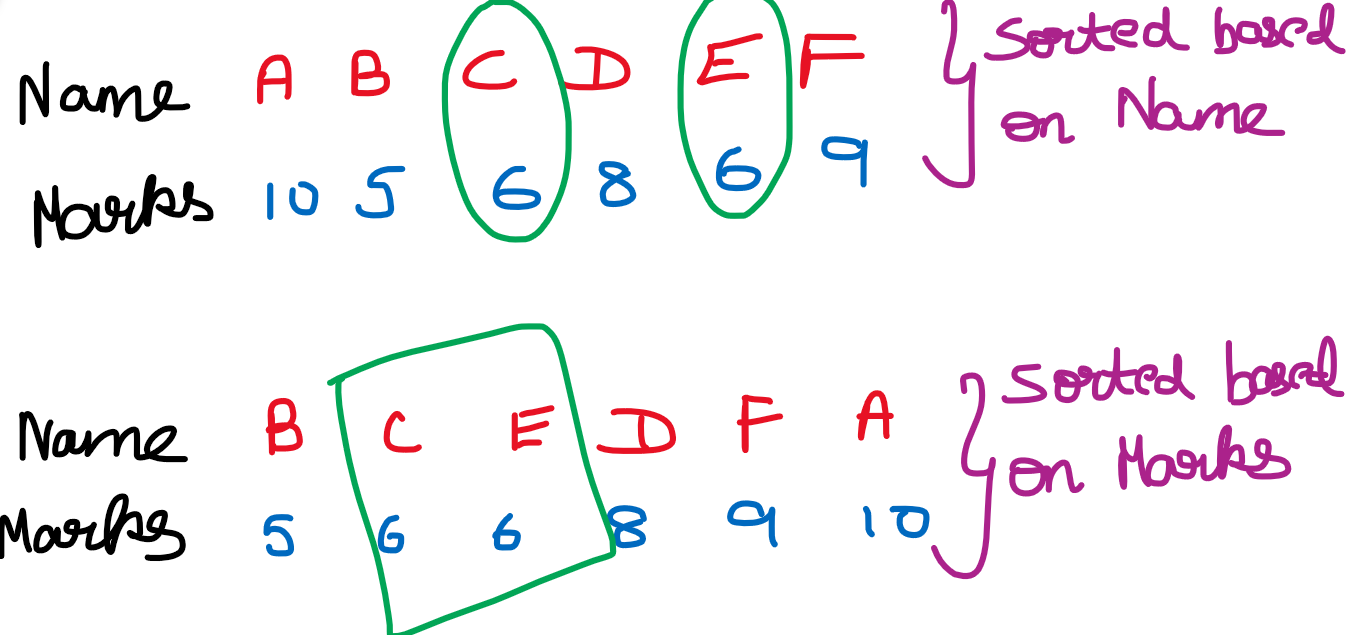 Name A B C D E F
Marks 10 5 6 8 6 9
Sorted based
on Name
Name B C E D F A
Marks 5 6 6 8 9 10
Sorted based
on Marks